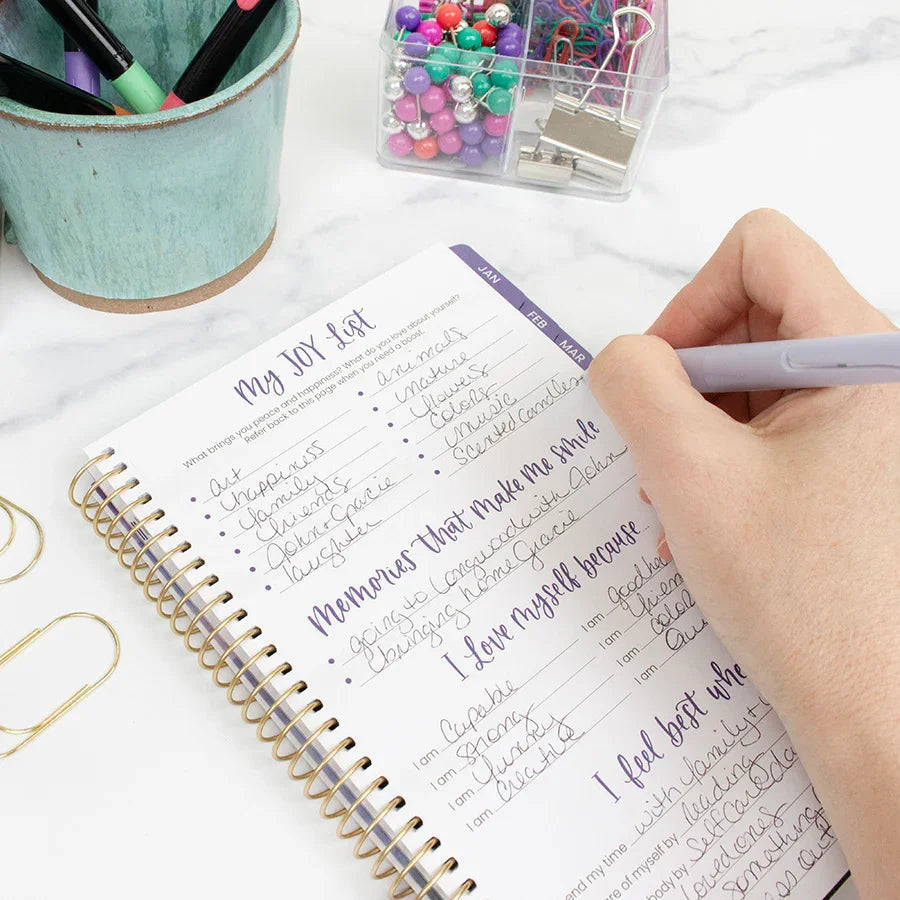 JAN
FEB
MAR
My JOY List
What brings you peace and happiness? What do you love about yourself?
Refer back to this page when you need a boost.
art
happiness
family
friends
John + Gracie
laughter
animals
nature
flowers
colors
music
Scented candles
Memories that make me smile
going to Longwood with John
bringing home Gracie
I love myself because...
I am Capable
I am Strong
I am funny
I am Creative
I am
I am
I am
I am
I feel best whe
with family +
leading
self care
loved ones
something
end my time
re of myself by
body by